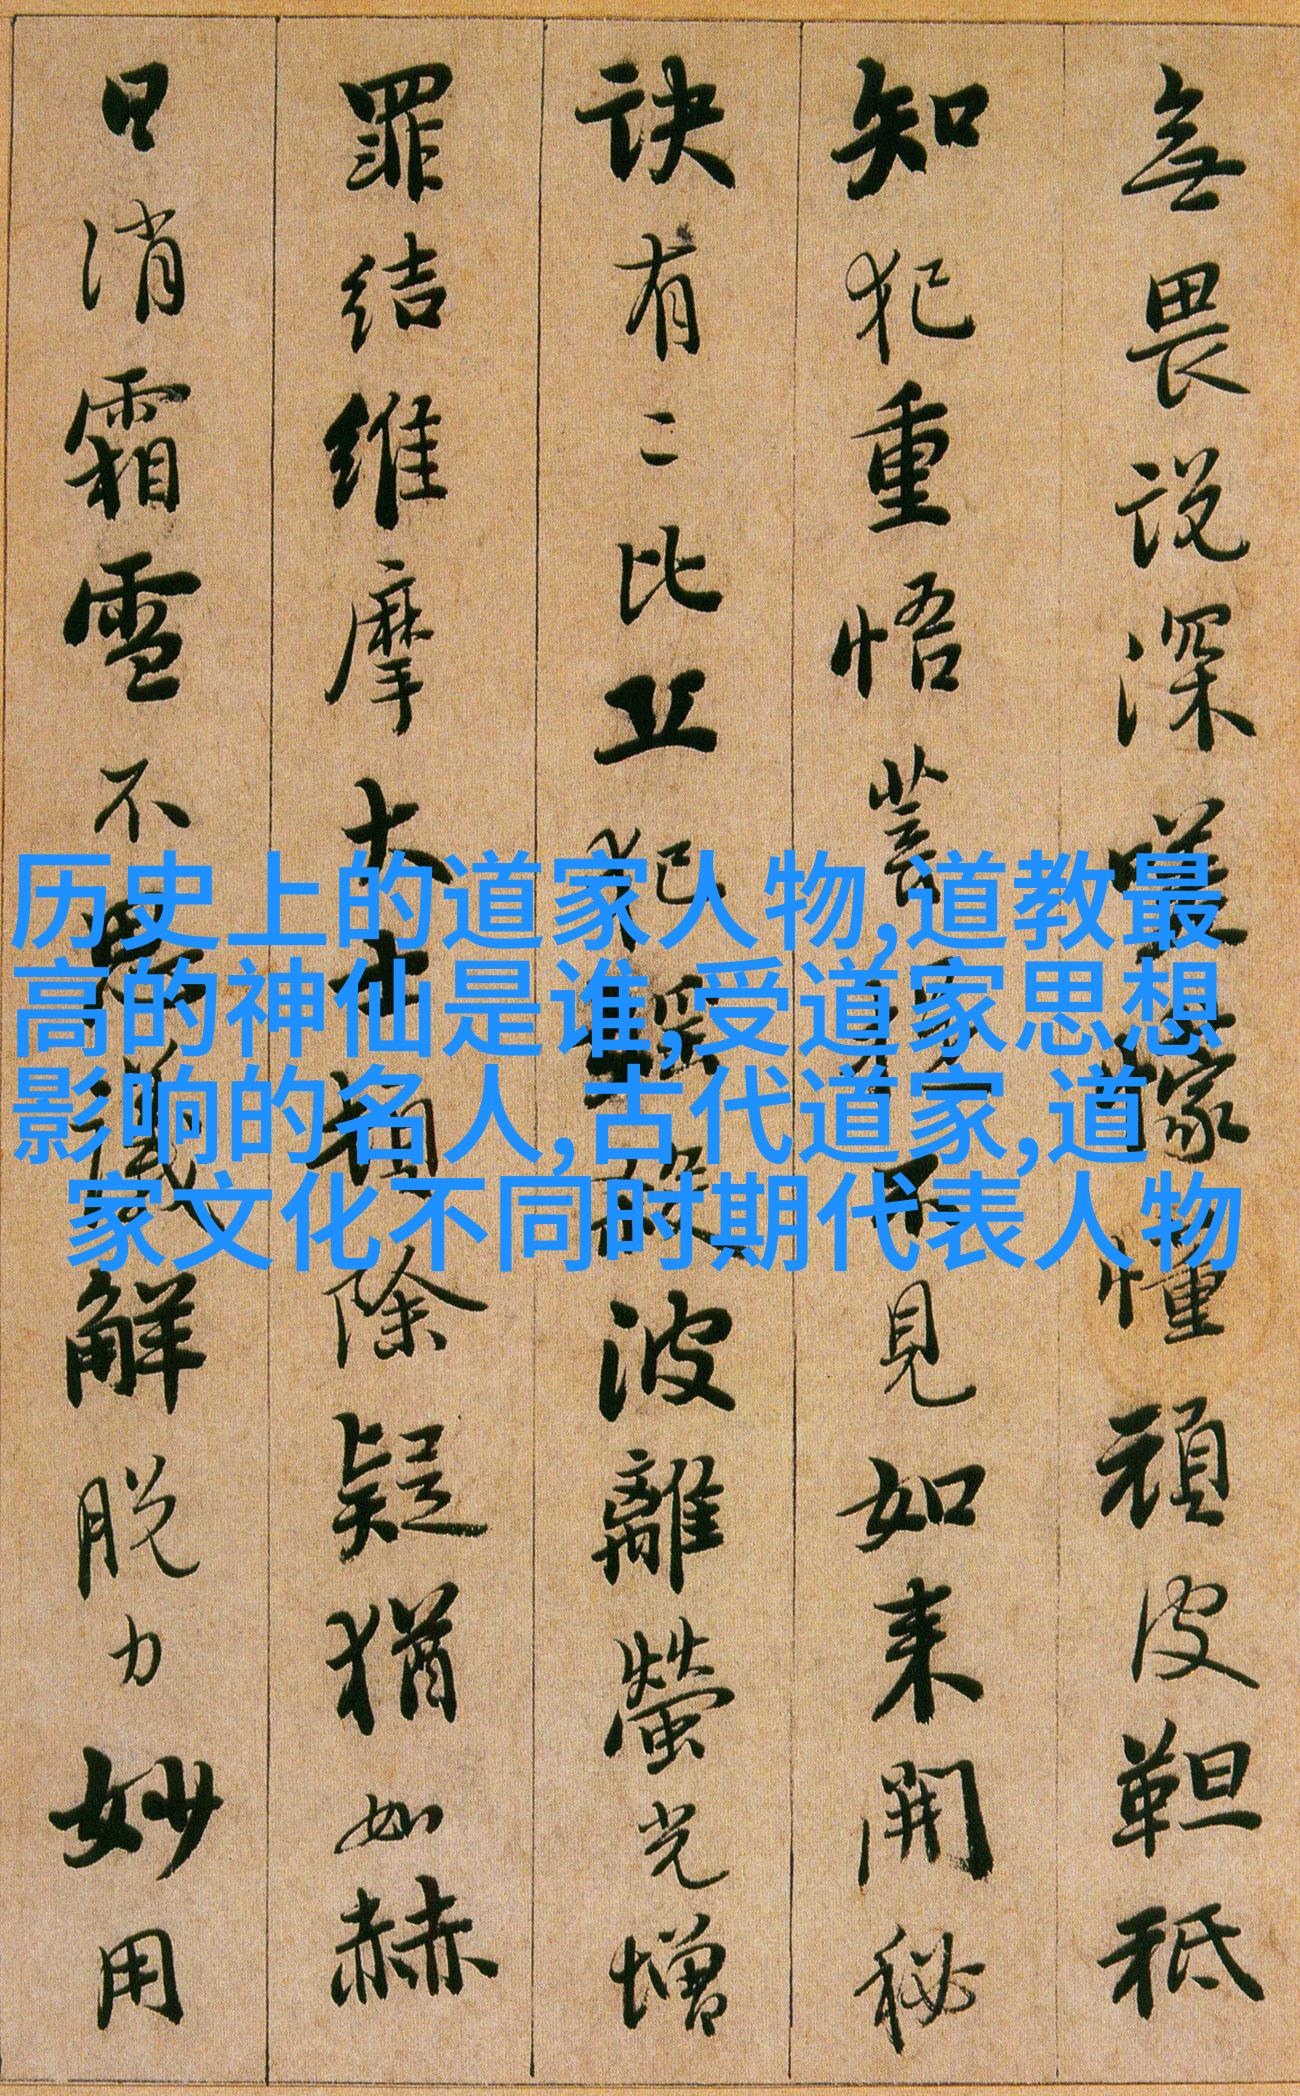 無畏說深嗟懞懂頑皮靼秖
知犯重悟不見如来開秘
訣有二比丘犯婬殺波離螢光增
罪結維摩大士頓除疑猶如赫
日消霜雪不思議解脫力妙用
历史上的道家人物,道教最
高的神仙是谁,受道家思想
影响的名人,古代道家,道
家文化不同时期代表人物